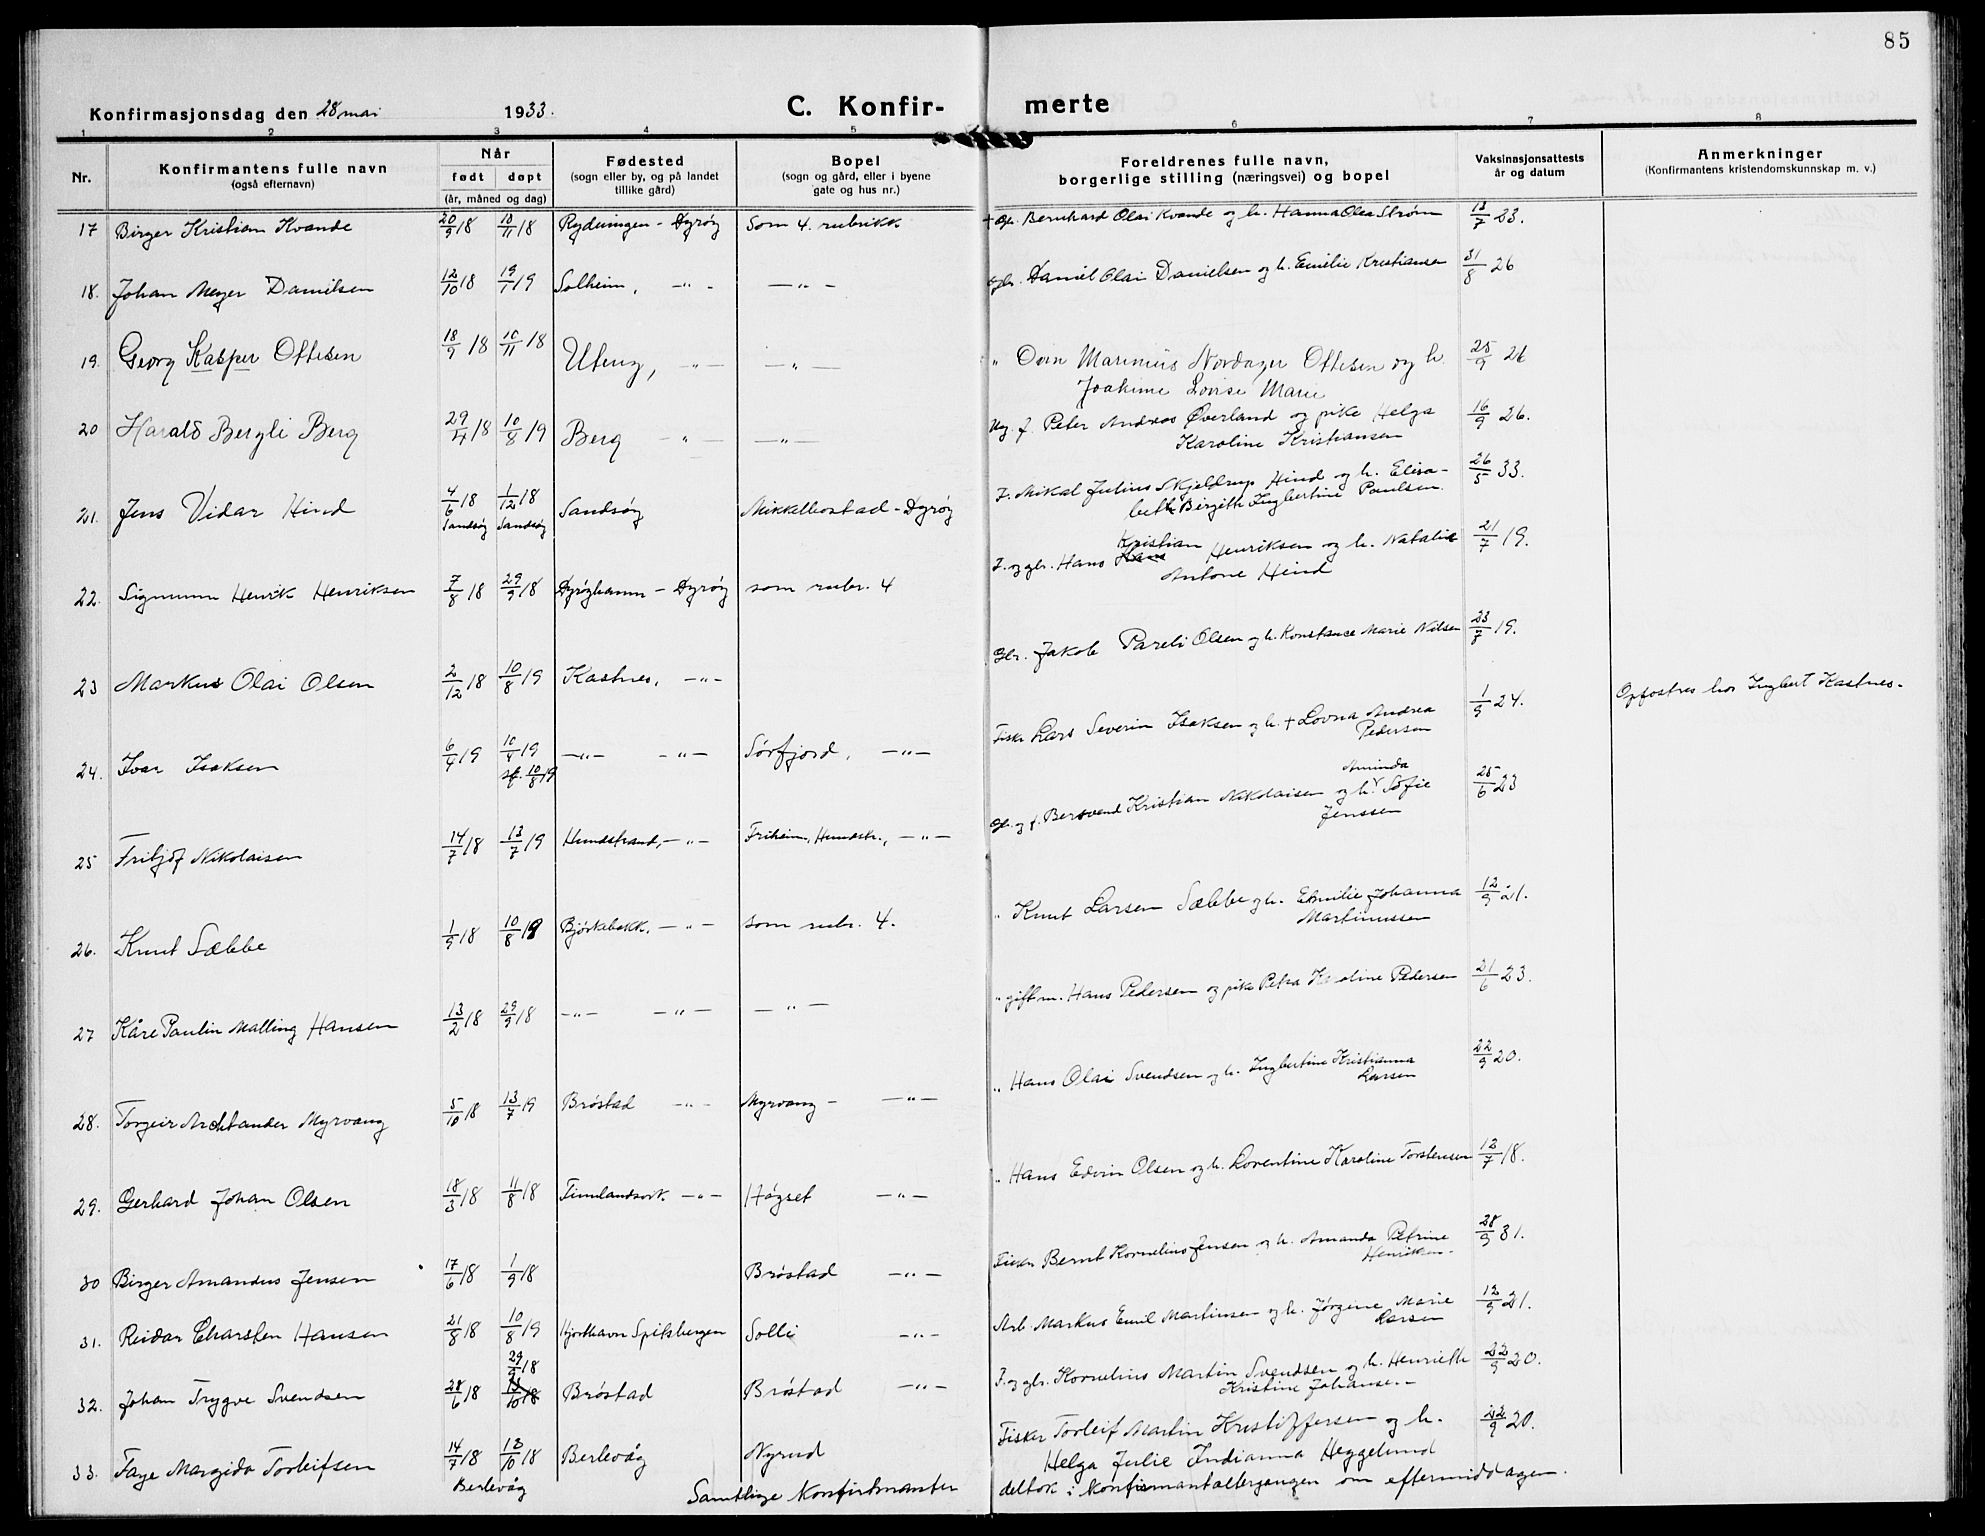 85
Konfirmasjonsdag den 28 mai 1933.
C. Konfir- merte
1 2 3 4 5 6 7 8
Nr.
Konfirmantens fulle navn
(også efternavn)
Når
født døpt
(år, måned og dag)
Fødested
(sogn eller by, og på landet
tillike gård)
Bopel
(sogn og gård, eller i byene
gate og hus nr.)
Foreldrenes fulle navn,
borgerlige stilling (næringsvei) og bopel
Vaksinasjonsattests
år og datum
Anmerkninger
(Konfirmantens kristendomskunnskap m. v.)
17 Birger Kristian Kvande 20/9 18 10/11 18 - Dyrøy Som 4. rubrikk + Gbr. Bernhard Olai Kvande og h. Hanna Olea Strøm 13/7 23.
18. Johan Meyer Danielsen 12/10 18 19/1 19 Solheim, -"- -"- Gbr. Daniel Olai Danielsen og h. Emilie Kristiansen 31/8 26
19. Georg Kasper Ottesen 18/9 18 10/11 18 Uteng, -"- -"- " Marinius Ottesen og h.
Joakime Lovise Marie 25/9 26
20 Harald Bergli Berg 29/4 18 10/8 19 Berg -"- -"- Ug. f. Peter Andreas Øverland og pike Helga
Karoline Kristiansen 16/9 26.
21. Jens Vidar Hind 4/6 18 1/12 18 Sandsøy Mikkelbostad - Dyrøy F. Mikal Julius Skjeldrup Hind og h. Elisa-
beth Birgith Ingbertine Paulsen. 26/5 33.
Sandsøy Sandsøy
22. Sigmunn Henrik Henriksen 7/8 18 29/9 18 Dyrøyhamn - Dyrøy som rubr. 4 F. og gbr. Hans Kristian Henriksen og h. Natalie
Antone Hind 21/7 19.
23 Markus Olai Olsen 2/12 18 10/8 19 Kastnes, -"- Gbr. Jakob Pareli Olsen og h. Konstance Marie Nilsen 23/8 19.
24. Ivar Isaksen 6/4 19 10/4 19 -"- -"- Sørfjord, -"- Fisker Lars Severin Isaksen og h. + Lovna Andrea
Pedersen 1/9 24. Opfostres hos Ingbert Kastnes.
st. 10/8 19
25 Fritjof Nikolaisen 14/7 18 13/7 19 Hundstrand, -"- Friheim, Hundstr., -"- Gbr. og f. Kristian Nikolaisen og h. Aminda Sofie
Jenssen 25/6 23
26. Knut Sæbbe 1/9 18 10/8 19 Bjørkebekk, -"- som rubr. 4. " Knut Larsen Sæbbe og h. Emilie Johanna
Martinussen 12/9 21.
27 Kåre Paulin Malling Hansen 13/2 18 29/9 18 -"- -"- -"- " gift m. Hans Pedersen og pike Petra Pedersen 21/6 23.
28. Torgeir Myrvang 5/10 18 13/7 19 Brøstad -"- Myrvang - -"- " Hans Olai Svendsen og h. Ingbertine Kristianna
Larsen 22/9 20.
29. Gerhard Johan Olsen 18/3 18 11/8 18 Finnlandsvk. -"- Høgset -"- " Hans Edvin Olsen og h. Lorentine Karoline Torstensen 12/7 18.
30 Birger Amandus Jensen 17/6 18 1/9 18 Brøstad -"- Fisker Bernt Kornelius Jensen og h. Amanda Petrine
Henriksen. 28/9 31.
31. Reidar Charsten Hansen 21/8 18 10/8 19 Hjorthavn Spitsbergen Solli -"- Arb. Markus Emil Martinsen og h. Jørgine Marie
Larsen 12/9 21.
32. Johan Trygve Svendsen 28/6 18 29/9 18 Brøstad Brøstad -"- F. og gbr. Kornelius Martin Svendsen og h. Henriette
Kristine Johansen. 22/9 20.
33. Taye Margido Torleifsen 14/7 18 13/10 18 Berlevåg Nyrud Fisker Torleif Martin Kristoffersen og h.
Helga Julie Indianna Heggelund 22/9 20.
Berlevåg
Samtlige konfirmanter deltok i konfirmantaltergangen om eftermiddagen.